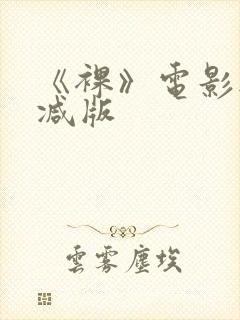 《裸》電影
减版
雲霧塵埃